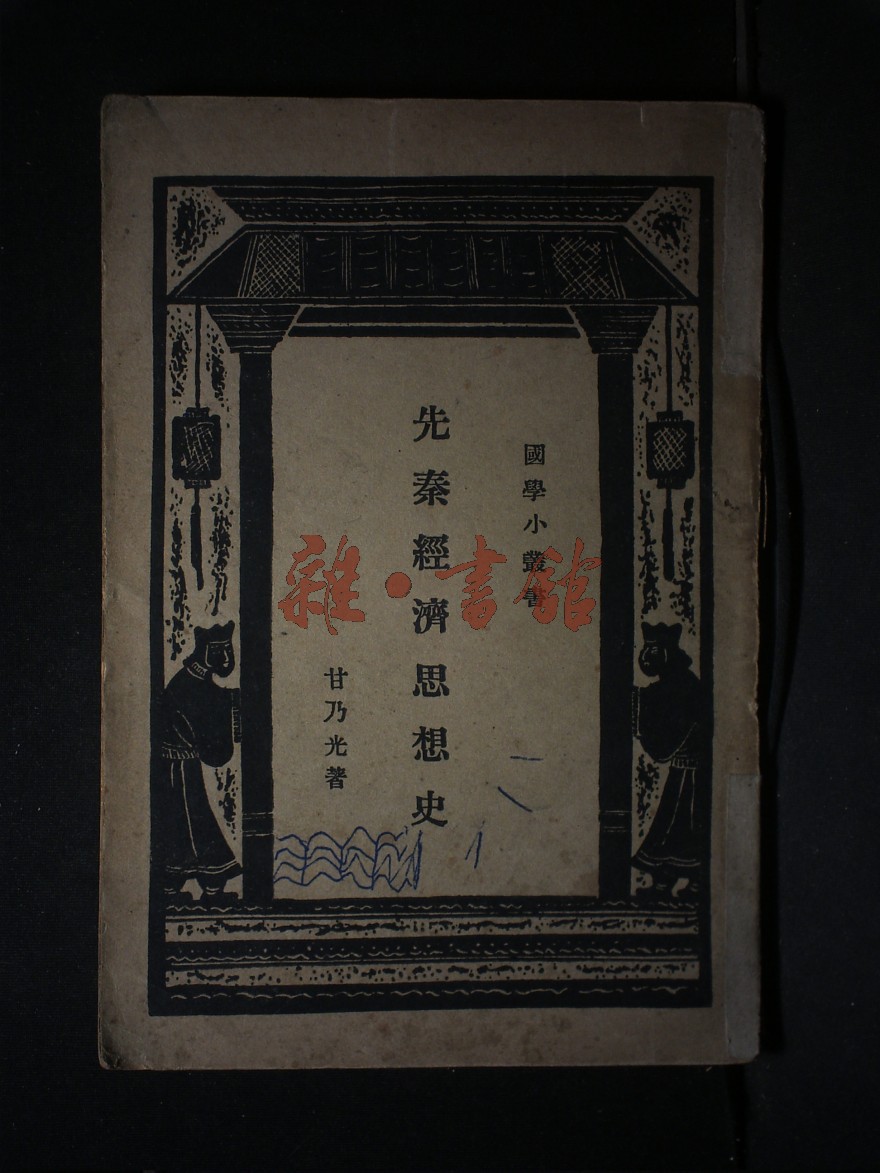 國學小叢書
先秦經濟思想史
甘乃光著
雜·書館